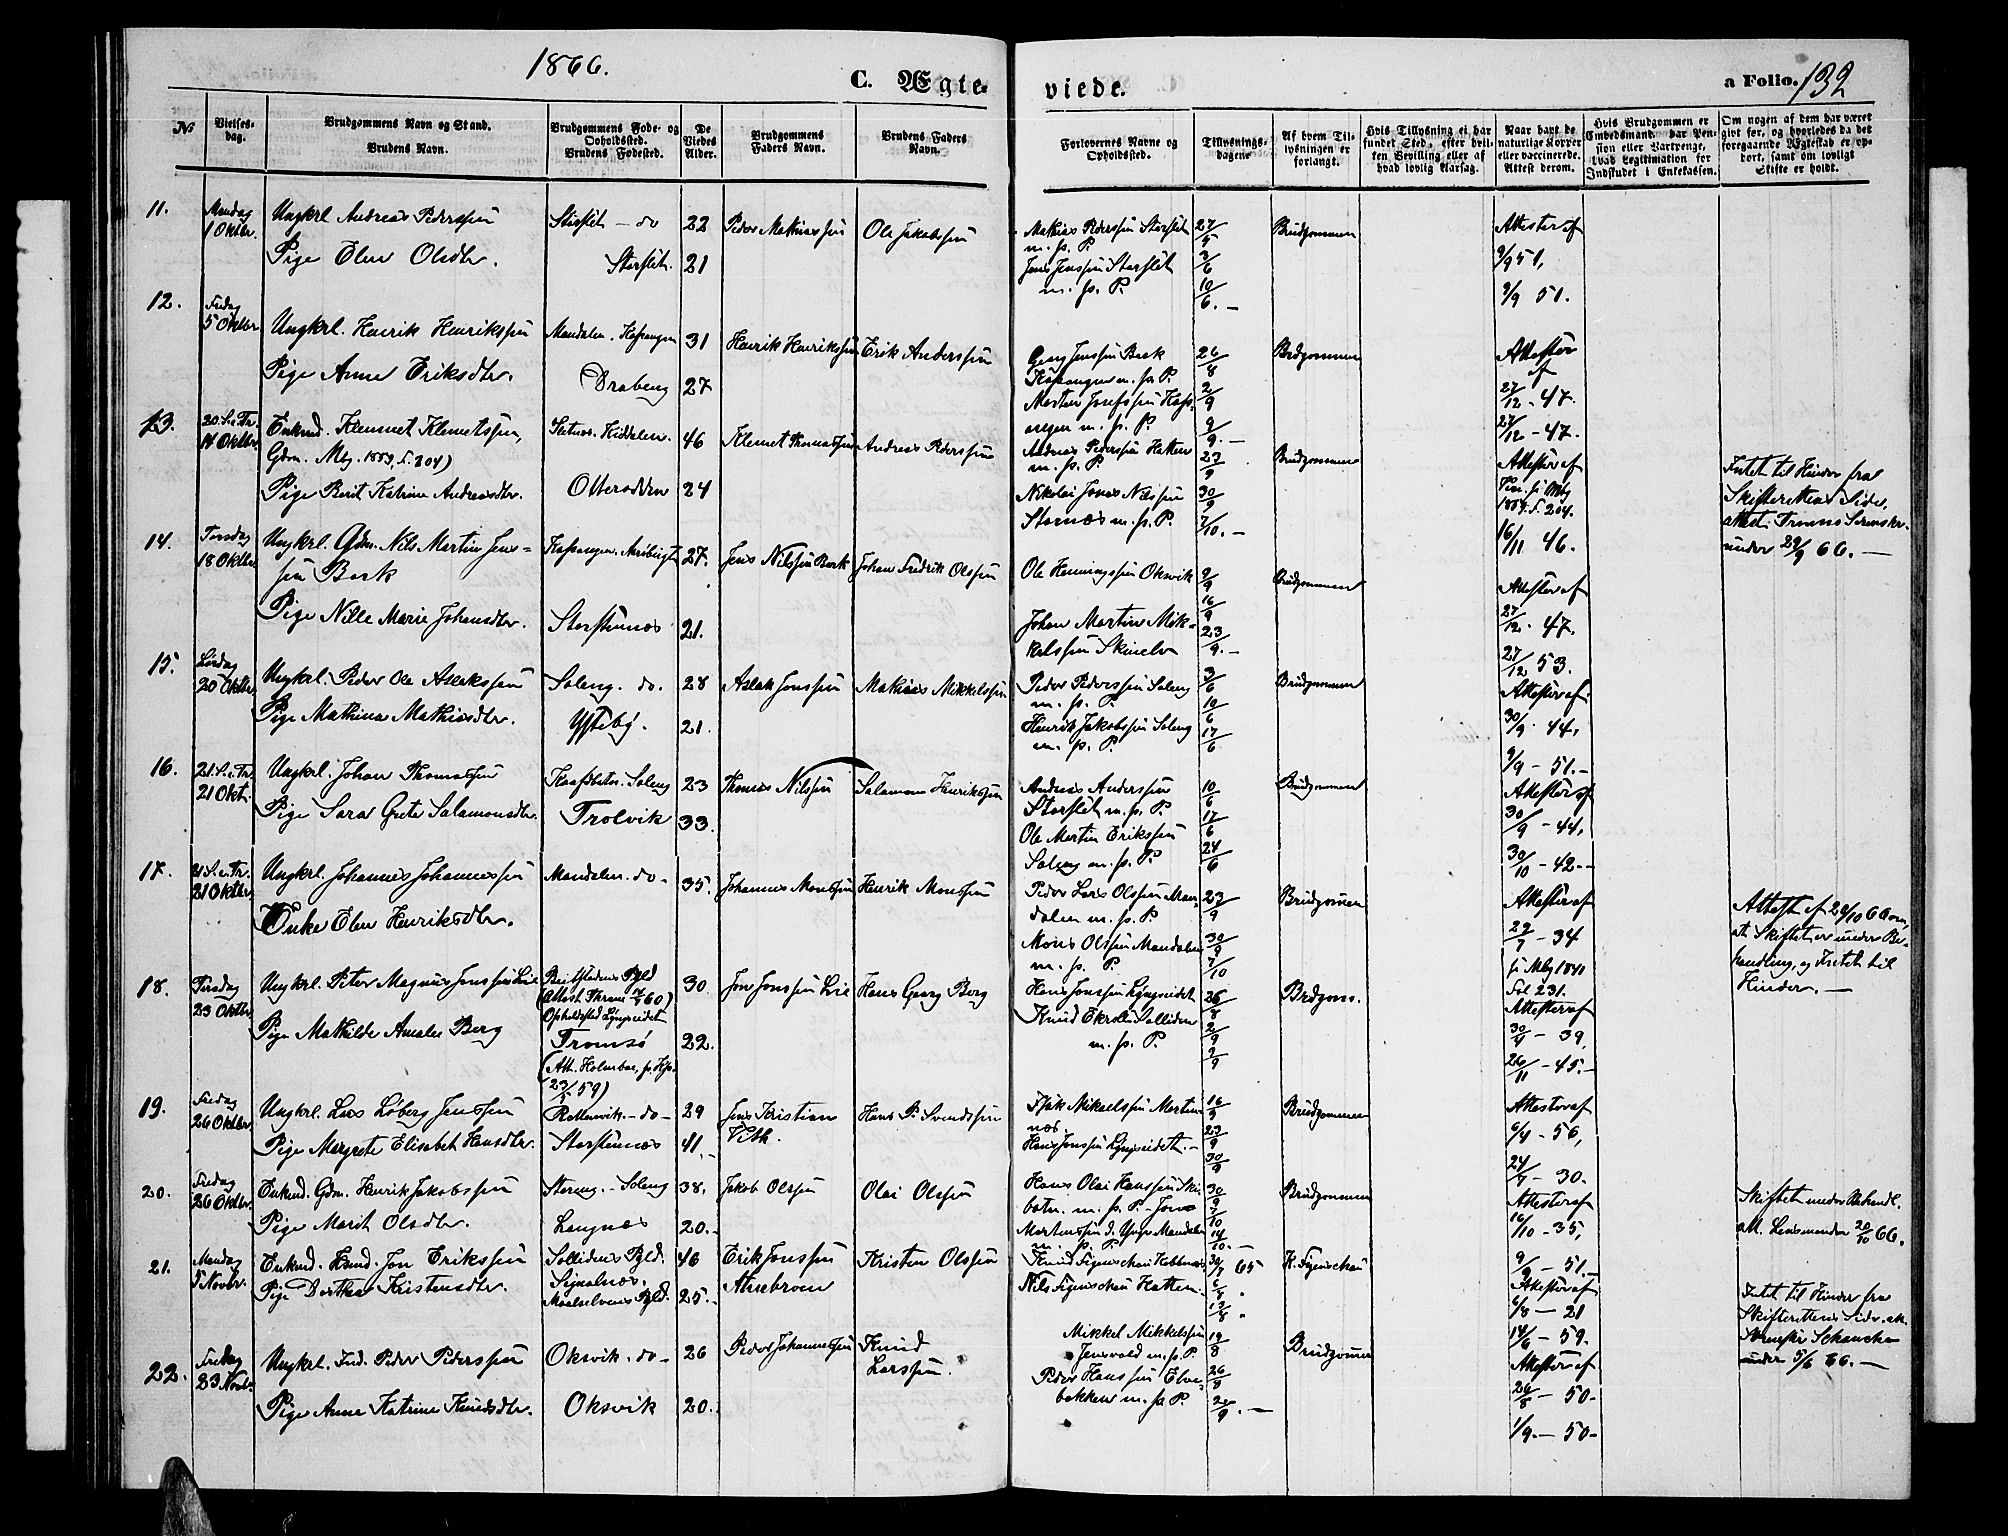 1866.
C. Ægte-
viede.
a Folio. 132
No
Vielses-
dag.
Brudgommens Navn og Stand.
Brudens Navn.
Brudgommens Føde- og
Opholdssted.
Brudens Fødested.
De
Viedes
Alder.
Brudgommens
Faders Navn.
Brudens Faders
Navn.
Forlovernes Navne og
Opholdssted.
Tillysnings-
dagene.
Af hvem Til-
lysningen er
forlangt.
Hvis Tillysning ei har
fundet Sted, efter hvil-
ken Bevilling eller af
hvad lovlig Aarsag.
Naar havt de
naturlige Kopper
eller vaccinerede.
Attest derom.
Hvis Brudgommen er
Embedsmand, har Pen-
sion eller Vartpenge,
hvad Legitimation for
Indskudet i Enkekassen.
Om nogen af dem har været
gift før, og hvorledes da det
foregaaende Ægteskab er op-
hørt, samt om lovligt
Skifte er holdt.
11.
Mandag
1 Oktbr.
Ungkrl. Andreas Pederssøn
Pige Elen Olsdtr.
Storslet - do
Storslet.
22
21
Peder Mathiassøn
Ole Jakobssøn
Mathias Pederssøn Storslet
m. p. P.
Jens Jenssøn Storslet
m. p. P.
27/5
3/6
10/6. -
Brudgommen
Attester af
9/9 51,
9/9 51.
12.
Fredag
5 Oktbr.
Ungkrl. Henrik Henrikssøn
Pige Anne Eriksdtr.
Mandalen. Kaafangen
Drabeng
31
27
Henrik Henrikssøn
Erik Anderssøn
Georg Jenssøn Bark
m. p. P.
Morten Josefssøn
m. p. P.
26/8
2/9
9/9. -
Brdgommen
Attester
af
27/12 - 47.
27/12 - 47.
13.
20. S. e. Tr.
14 Oktbr.
Enkmd. Klemmet Klemetssøn,
Gdm. Mbg. 1859, F. 204)
Pige Berit Katrine Andreasdtr.
Kiddalen.
Otterodden
46
24
Klemet Thomassøn
Andreas Pederssøn
Andreas Pederssøn Hatten
m. p. P.
Nikolai Jonas Nilssøn
Stornæs m. p. P.
23/9
30/9
7/10. -
Brudgommen
Attester af
F. 204.
16/11 46.
Intet til Hinder fra
Skifterettens Side,
attest. Tromsø Sorenskr.
under 29/9 66. -
14.
Torsdag
18 Oktbr.
Ungkrl. Gdm. Nils Martin Jens-
søn Bark
Pige Nille Marie Johansdtr.
Storstennæs
27.
21.
Jens Nilssøn Bark
Johan Fredrik Olssøn
Ole Henningssøn Oksvik
Johan Martin Mik-
kelssøn Skinelv
9/9
16/9
23/9. -
Brudgommen
Attester af
27/12 - 47.
27/12 53.
15.
Lørdag
20 Oktbr.
Ungkrl. Peder Ole Aslakssøn
Pige Mathine Mathiasdtr.
Soleng. do.
Yttebø.
28
21.
Aslak Jonssøn
Mathias Mikkelssøn
Peder Pederssøn Soleng
m. p. P.
Henrik Jakobssøn Soleng
m. p. P.
3/6
10/6
17/6
Brudgommen
Attester af
30/9 - 44,
9/9 - 51. -
16.
21. S. e. Tr.
21 Okt.
Ungkrl. Johan Thomassøn
Pige Sara Grete Salamonsdtr.
Soleng
Trolvik
23
33.
Thomas Nilssøn
Salamon Henrikssøn
Andreas Anderssøn
Storslet m. p. P.
Ole Martin Erikssøn
Soleng m. p. P.
10/6
17/6
24/6
Brudgommen
Attester af
30/9 - 44,
30/10 - 42. -
17.
21. S. e. Tr.
21 Oktbr.
Ungkrl. Johannes Johannessøn
Enke Elen Henriksdtr.
Mandalen. do-
35.
Johannes Monssøn
Henrik Monssøn
Peder Lars Olssøn Man-
dalen m. p. P.
Mons Olssøn Mandalen
m. p. P.
23/9
30/9
7/10
Brudgommen
Attester af
22/7 - 34
Mbg 1840
Fol 231.
Attest af 20/10 66 om,
at Skiftet er under Be-
handling, og Intet til
Hinder. -
18.
Tirsdag
23 Oktbr.
Ungkrl. Peter Magnus Jonssøn Lie
Pige Mathilde Amalie Berg
Beitstadens Pgld
Opholdssted Lyngseidet
Tromsø
(Att. Holmboe,
59)
30.
22.
Jon Jonssøn Lie
Hans Georg Berg
Hans Jonssøn Lyngseidet
Knud Solliden
m. p. P.
26/8
2/9
9/9
Brdgom.
Attester af
30/9 - 39,
26/11 - 45. -
19.
Fredag
26 Oktbr.
Ungkrl. Lars Løberg Jenssøn
Pige Margrete Elisabet Hansdtr.
Rottenvik - do -
Storstennæs
29
41. -
Jens Kristian
Veth.
Hans P. Svendssøn
Isak Mikaelssøn Morten-
næs.
Hans Jonssøn Lyngseidet. -
16/9
23/9
30/9
Brudgommen
Attester af
6/9 - 56,
24/7 - 30.
20.
Fredag
26 Oktbr.
Enkmd. Gdm. Henrik Jakobssøn
Pige Marit Olsdtr.
Storeng. - Soleng
Langnæs
38.
20. -
Jakob Olssøn
Olai Olssøn
Hans Olai Hanssøn Ski-
botn. m. p. P. - Jons
Mortenssøn d. Yngr Mandalen
m. p. P.
30/9
7/10
14/10. -
Brudgommen
Attester af
16/10 - 35,
9/9 - 51. -
Skiftet under Behandl.
att. Lensmanden 20/10 66.
21.
Mandag
5 Novbr.
Enkmd. Husmd. Jon Erikssøn
Pige Dorthea Kristensdtr.
Sollidens Pgld.
Signalnæs.
Maalselvens Pgld.
46
25. -
Erik Jonssøn
Kristen Olssøn
Knud Figenschau
Nils Figenschau Hatten.
30/7 65
6/8 "
13/8 "
K. Figenschau
Attester af
6/8 - 21
14/6 - 59.
Intet til Hinder fra
Skifterettens Side, att.
under 5/6 66. -
22.
Fredag
23 Novbr.
Ungkrl. Ind. Peder Pederssøn
Pige Anne Katrine Knudsdtr.
Oksvik - do-
Oksvik
26
20. -
Peder Johannessøn
Knud
Larssøn.
Mikkel Mikkelssøn
Jensvold m. p. P.
Peder Hanssøn Elve-
bakken m. p. P.
19/8
26/8
20/9. -
Brudgommen
Attester af
26/8 - 50 -
1/9. - 50 -